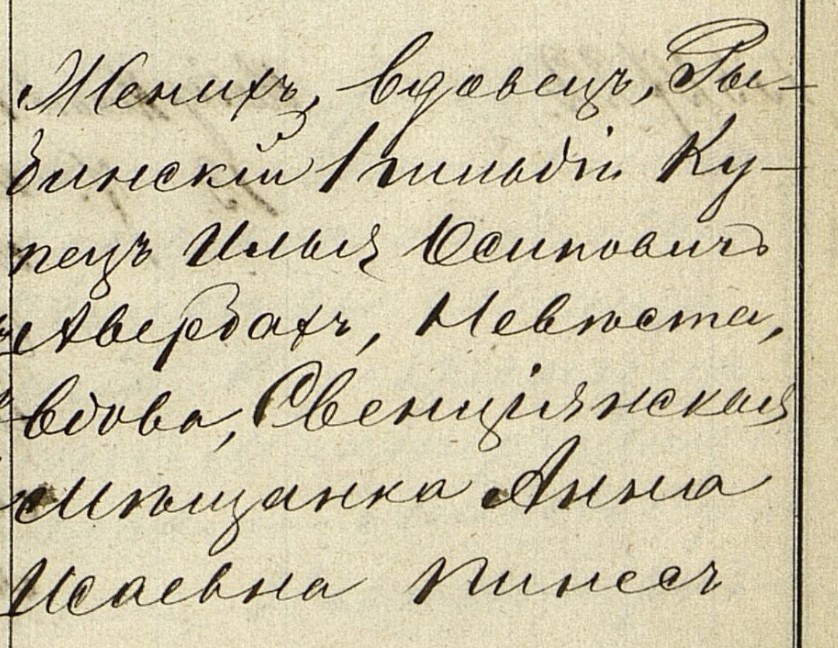 Женихъ, вдовецъ, Ры-
бинскій 1 гильдіи Ку-
пецъ Илья Осиповичъ
Авербахъ, Невѣста,
вдова, Свенціянская
Мѣщанка Анна
Исаевна Пинесъ